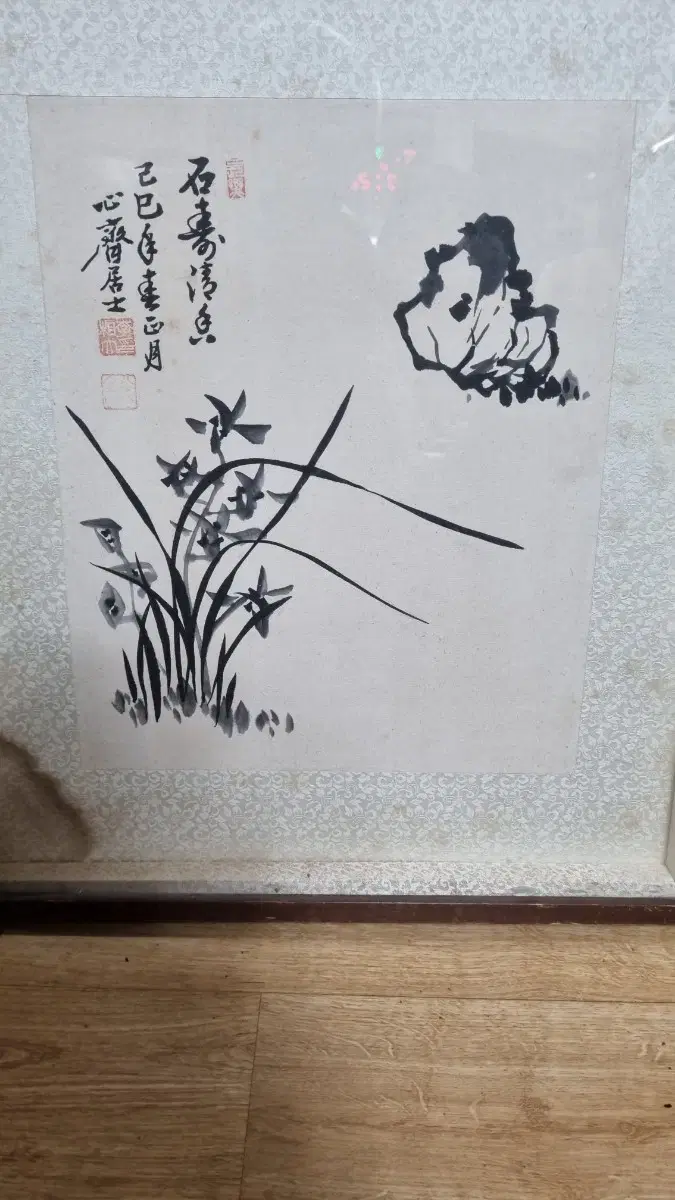 石壽清香
己巳年春正月
心齋居士